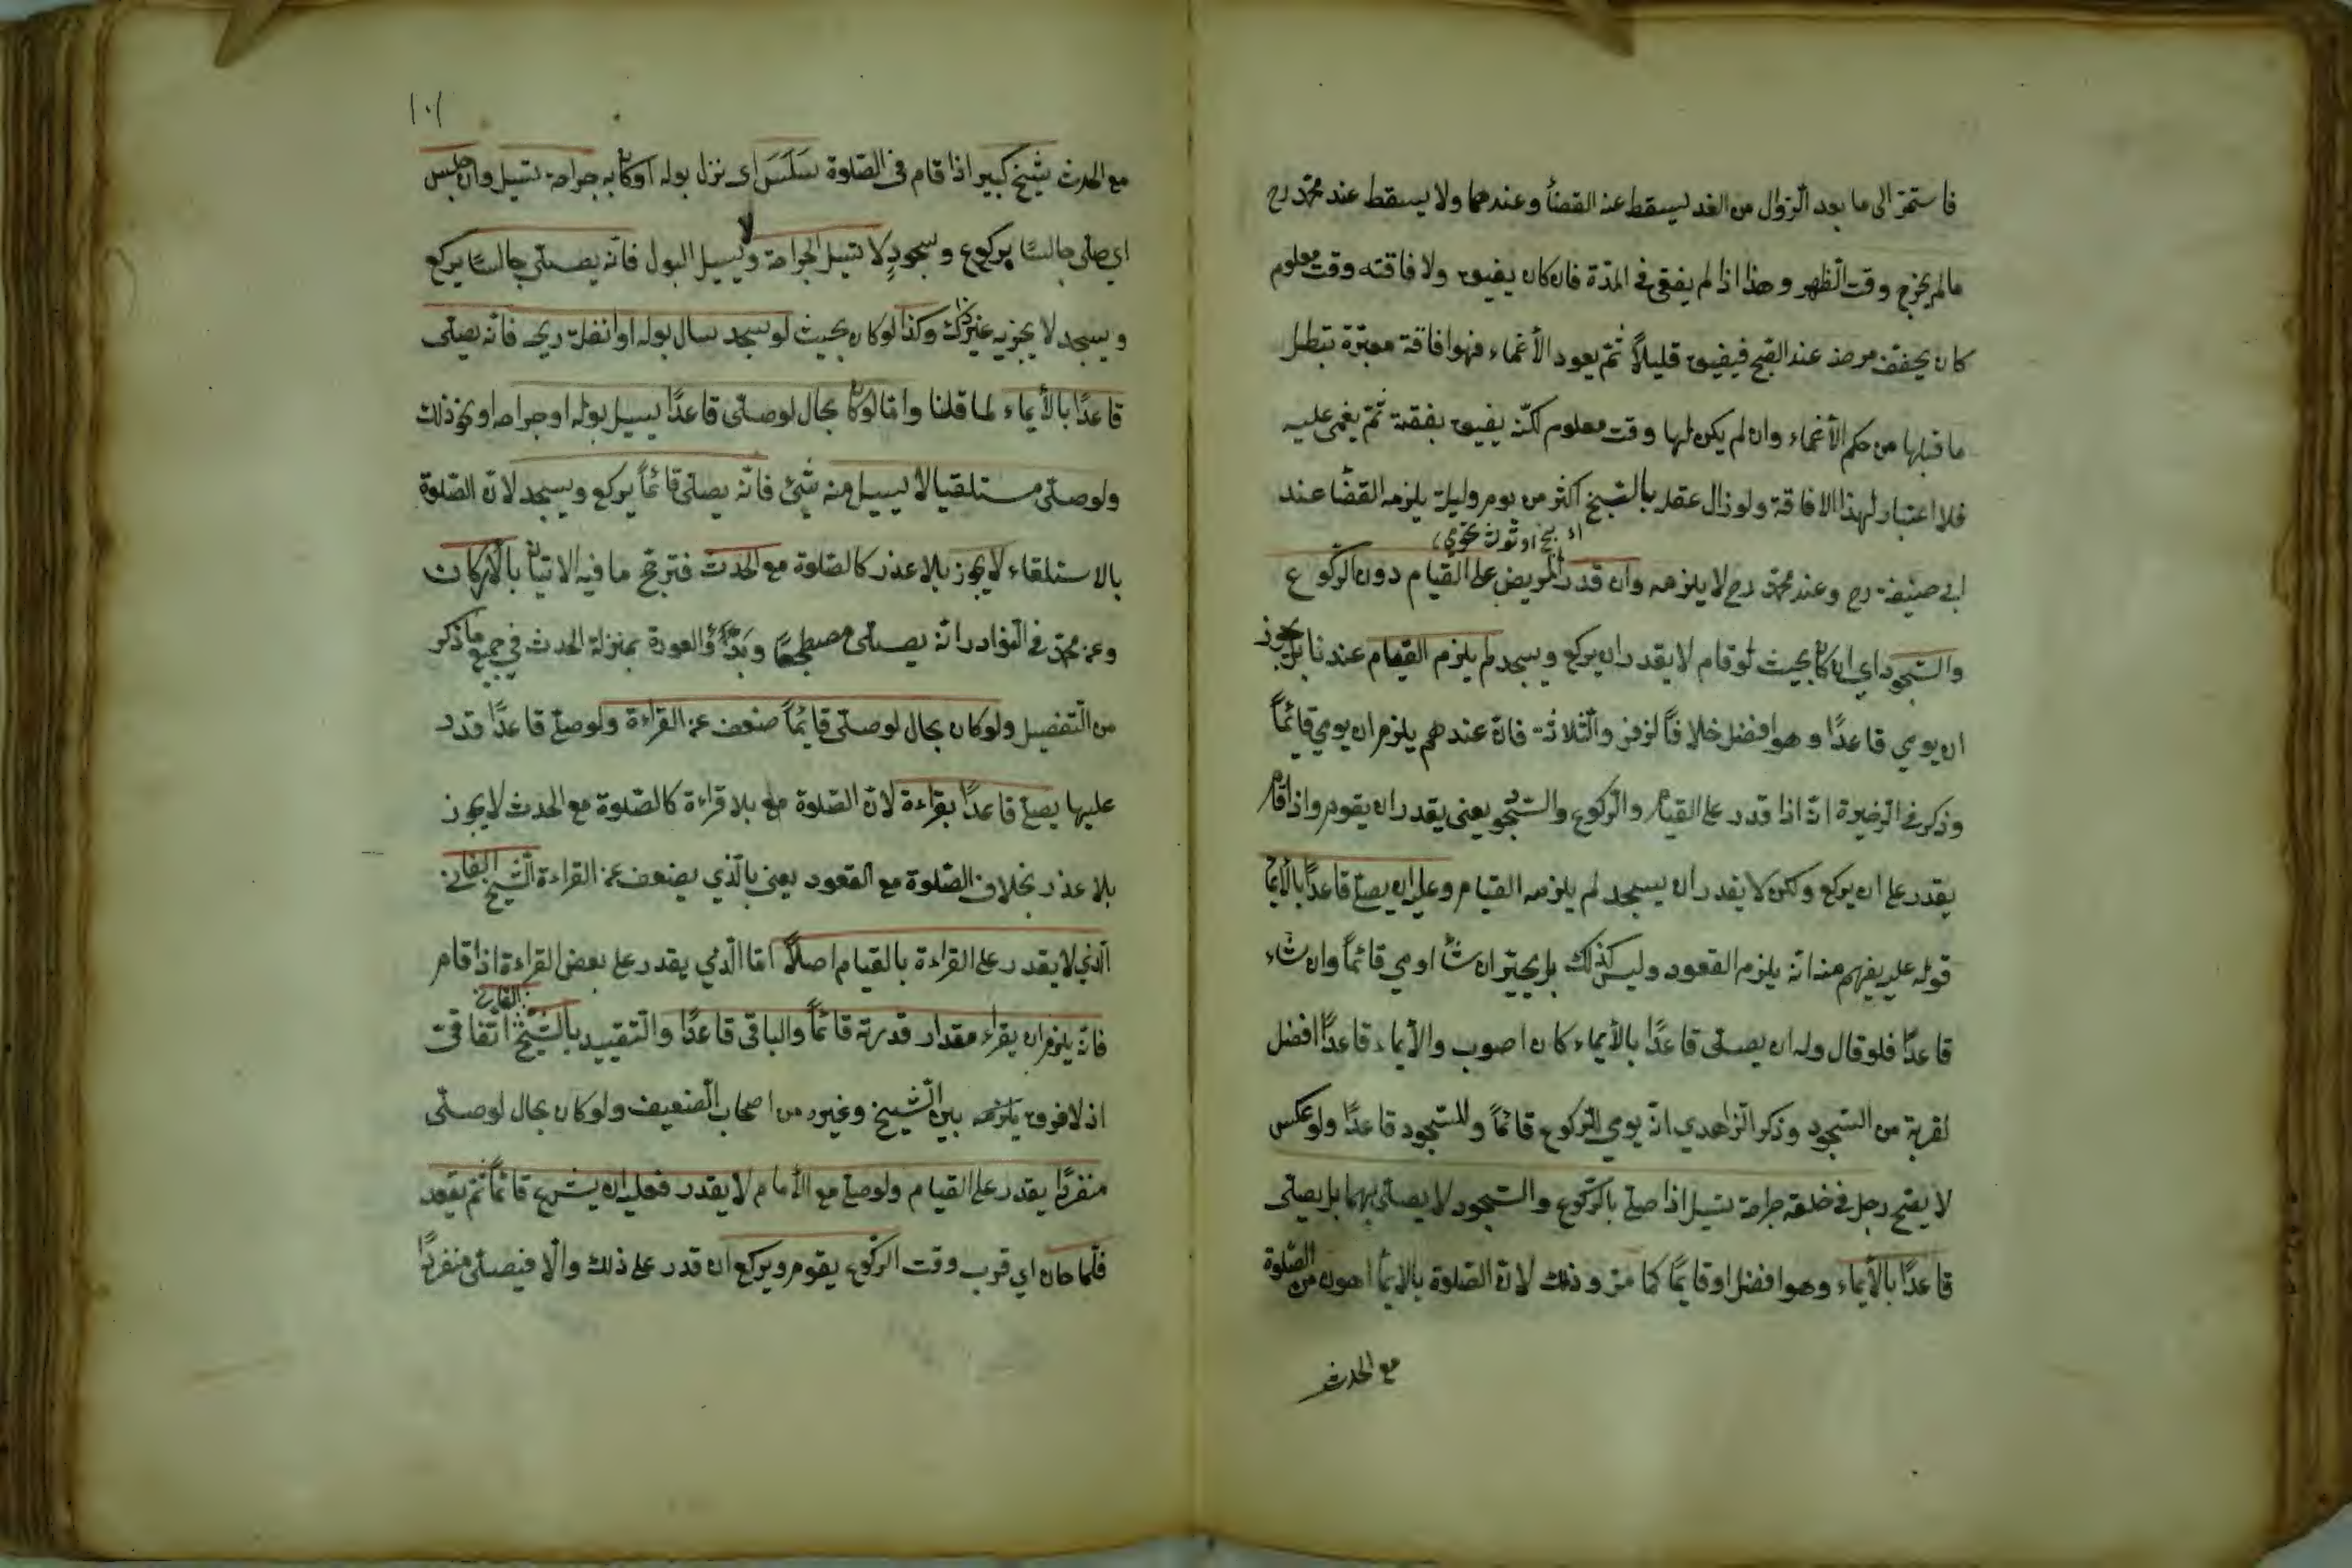 فاستمر الى ما بعد الزوال من الغد يسقط عنه القضأ وعندهما ولا يسقط عند محمّد رح
مالم يخرج وقت الظهر وهذا اذا لم يفق في المدّة فان كان يفيق ولافاقته وقت معلوم
كان يخفف مرضه عند الصبح فيفيق قليلاً ثمّ يعود الأغماء فهو افاقة معتبرة تبطل
ما قبلها من حكم الأغماء وان لم يكن لها وقت معلوم لكنّه يفيق بغتة ثمّ يغمى عليه
فلا اعتبار لهذا الافاقة ولو زال عقله بالشيخ اكثر من يوم وليلة يلزمه القضا عند
ابي حنيفة رح وعند محمّد رح لا يلزمه وان قدر المريض على القيام دون الركوع
والسّجود اي ان كان بحيث لو قام لا يقدر ان يركع ويسجد لم يلزم القيام عندنا بل يجوز
ان يومي قاعدًا وهو افضل خلافاً لزفر والثّلاثة فانّ عندهم يلزم ان يومي قائماً
وذكر في الذخيرة انّه اذا قدر على القيام والرّكوع والسّجو يعنى يقدر ان يقوم واذا قام
يقدر على ان يركع ولكن لا يقدر ان يسجد لم يلزمه القيام وعليه ان يصلّى قاعدًا بالأيما
قوله عليه يفهم منه انّه يلزم القعود وليس كذلك بل يخيّر ان شأ اومي قائماً وان شاء
قاعدًا فلو قال وله ان يصلّى قاعدًا بالأيماء كان اصوب والأيماء قاعدًا افضل
لقربة من السّجود وذكر الزّاهدي انّه يومي للركوع قائماً وللسّجود قاعدًا ولو عكس
لا يصح رجل في حلقه جراحة تسيل اذا صلى بالرّكوع والسّجود لا يصلّى بهما بل يصلّى
قاعدًا بالأيماء وهو افضل او قائمًا كما مرّ وذلك لانّ الصّلوة بالايمأ اهون من الصّلوة
مع الحدث
١٠١
مع الحدث شيخ كبير اذا قام في الصّلوة سَلَسَ اى نزل بوله او كان به جراحة تسيل وان جلس
اي صلّى جالسًا بركوع وسجودٍ لا تسيل الجراحة ولا يسيل البول فانّه يصلّى جالسًا يركع
ويسجد لا يجزيه غير ذلك وكذا لو كان بحيث لو سجد سال بوله او انفلت ريحه فانّه يصلّى
قاعدًا بالأيماء لما قلنا وامّا لو كان بحال لو صلّى قاعدًا يسيل بوله او جراحه او نحو ذلك
ولو صلّى مستلقيا لا يسيل منه شئ فانّه يصلى قائماً يركع ويسجد لانّ الصّلوة
بالاستلقاء لا يجوز بلا عذر كالصّلوة مع الحدث فترجّح ما فيه الاتيان بالأركان
وعن محمّد في النّوادر انّه يصلّى مضطجعًا وبَدْوُّ العورة بمنزلة الحدث في جميع ما ذكر
من التّفصيل ولو كان بحال لو صلّى قايماً ضعف عن القراءة ولو صلّى قاعدًا قدر
عليها يصلّى قاعدًا بقراءة لانّ الصّلوة مع بلا قراءة كالصّلوة مع الحدث لا يجوز
بلا عذر بخلاف الصّلوة مع القعود يعنى بالّذي يضعف عن القراءة الشّيخ الفانى
الّذي لا يقدر على القراءة بالقيام اصلاً امّا الّذي يقدر على بعض القراءة اذا قام
الفانى
فانّه يلزم ان يقراء مقدار قدرته قائماً والباقى قاعدًا والتّقييد بالشّيخ اتّفاقى
اذ لا فرق بين الشّيخ وغيره من اصحاب الضّعيف ولو كان بحال لو صلّى
منفردًا يقدر على القيام ولو صلى مع الأمام لا يقدر فعليه ان يشرع قائماً ثمّ يقعد
فلمّا حان اي قرب وقت الرّكوع يقوم ويركع ان قدر على ذلك والّا فيصلّى منفردًا